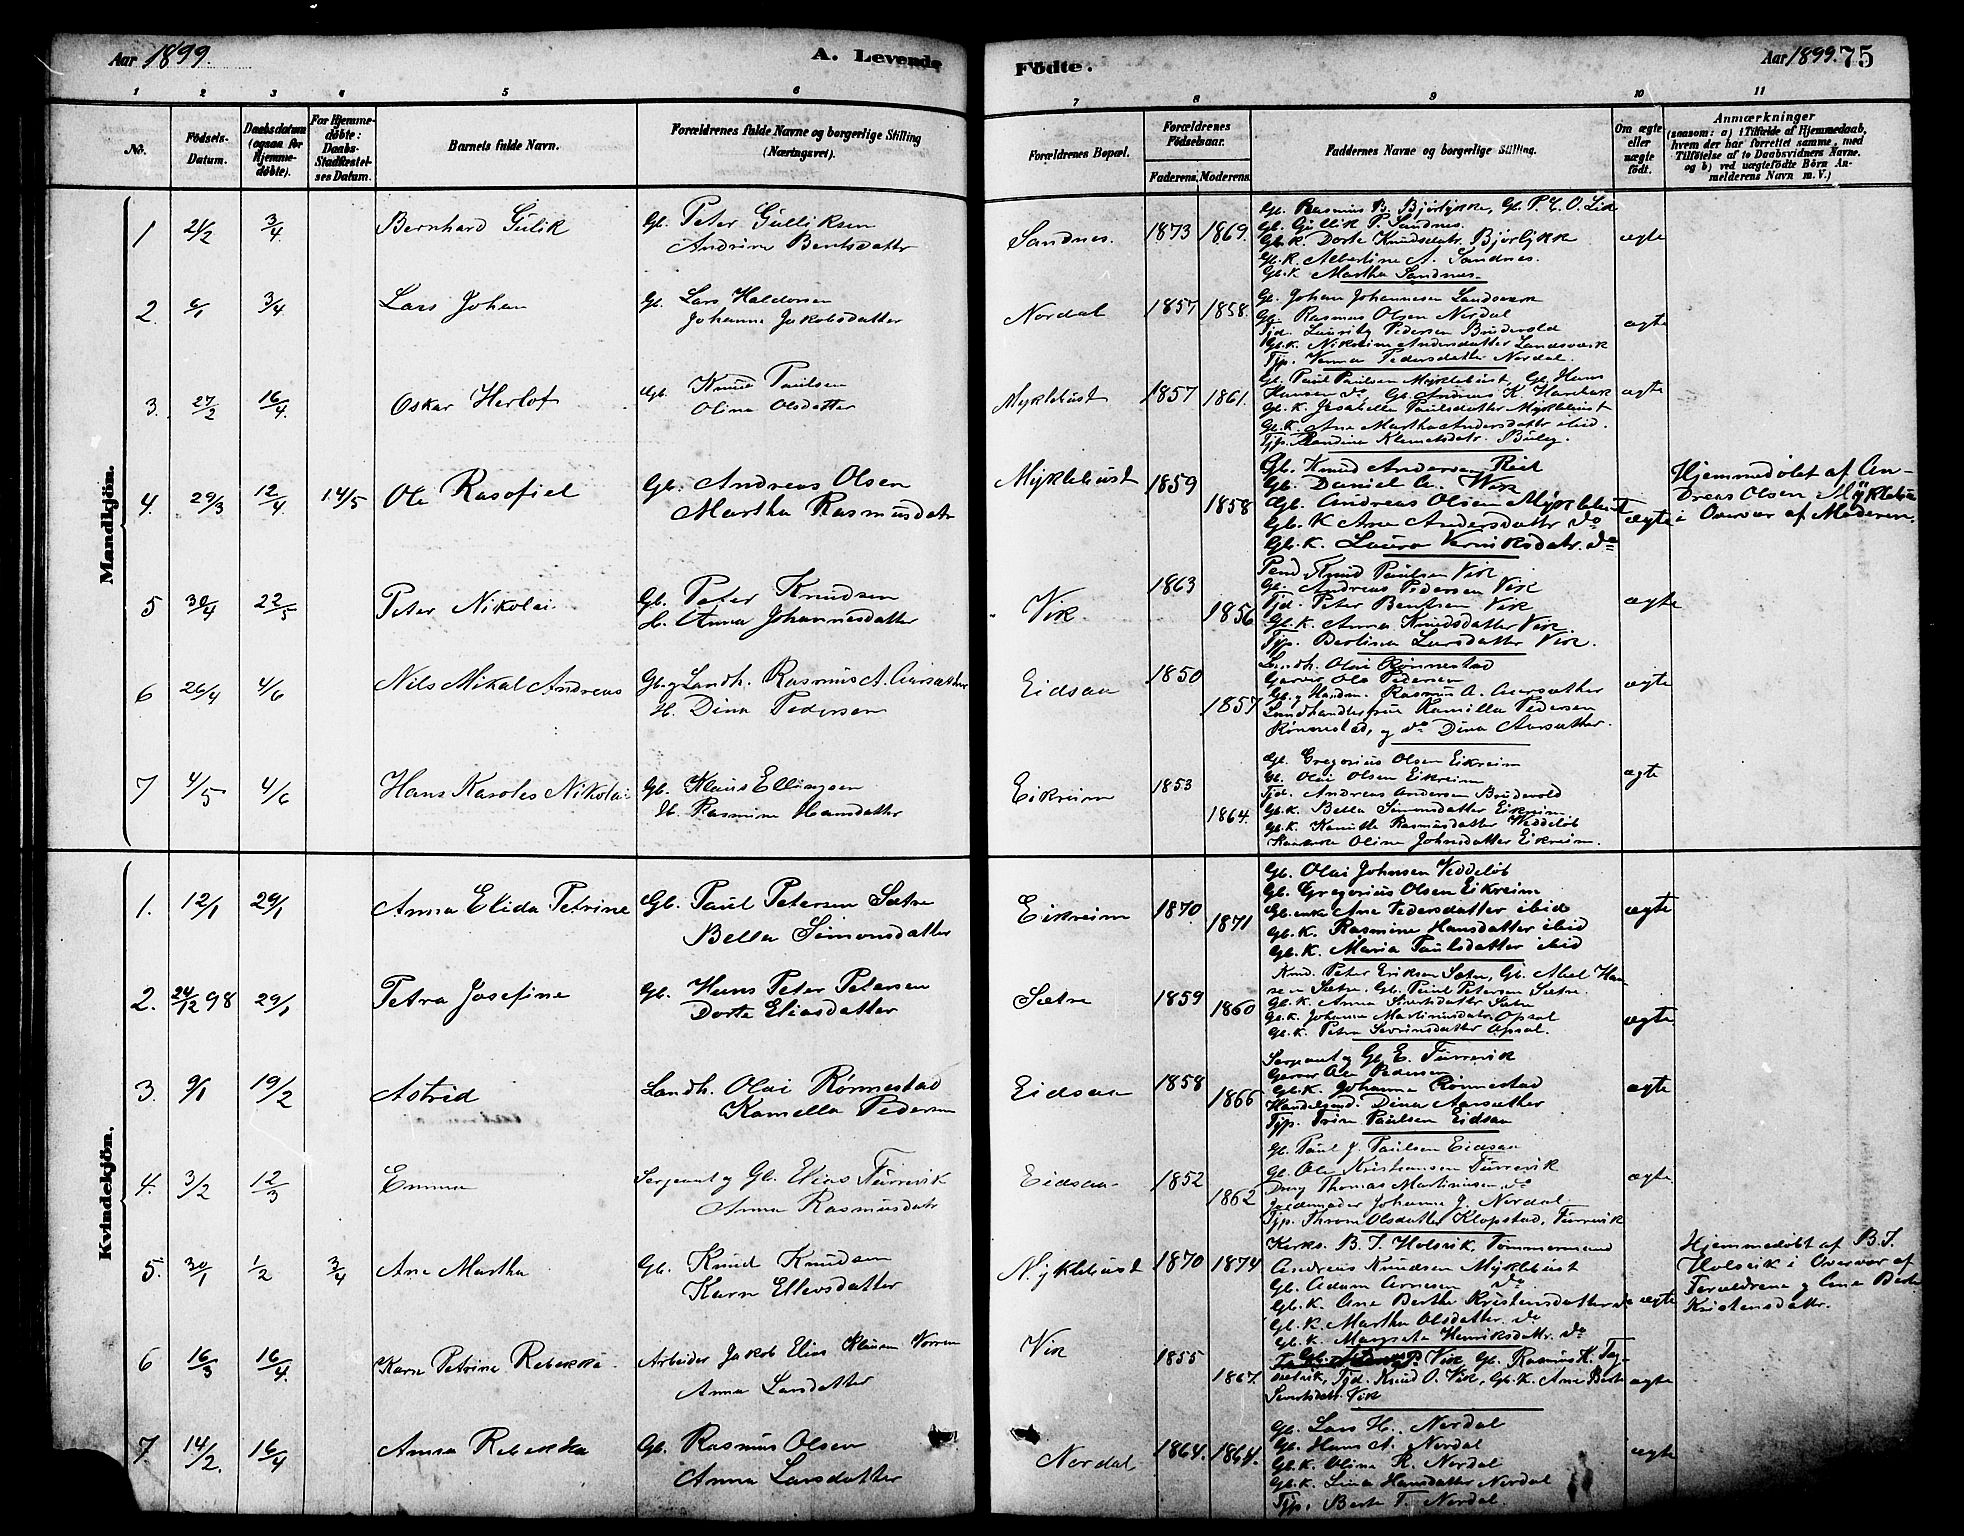 Aar 1899.
A. Levende Födte.
Aar 1899. 75
1 2 3 4 5 6 7 8 9 10 11
No.
Födsels-Datum.
Daabsdatum (ogsaa for Hjemmedøbte).
For Hjemmedøbte: Daabs-Stadfæstelses Datum.
Barnets fulde Navn.
Forældrenes fulde Navne og borgerlige Stilling (Næringsvei).
Forældrenes Bopæl.
Forældrenes Födselsaar.
Faderens. Moderens.
Faddernes Navne og borgerlige Stilling.
Om ægte eller uægte födt.
Anmærkninger
(saasom: a) i Tilfælde af Hjemmedaab, hvem der har forrettet samme, med Tilföielse af to Daabsvidners Navne, og b) ved uægtefödte Börn Anmelderens Navn m. V.)
Mandkjön.
1 21/2 3/4 Bernhard Gulik
Gb. Peter Gulliksen
Andrine Bentsdatter
Sandnes. 1873 1869.
Gb. Rasmus B. Bjørlykke, Gb. P. E. O. Lie
Gb. Gullik P. Sandnes.
Gb.k. Dorte Knudsdatr. Bjørlykke
Gb.k. Albertine A. Sandnes.
Gb.k. Martha Sandnes.
ægte
2. 6/1 3/4 Lars Johan
Gb. Lars Haldorsen
Johanne Jakobsdatter
Nordal 1857 1858.
Gb. Johan Johannesen Landsværk
Gb. Rasmus Olsen Nordal
Tjd. Lauritz Pedersen Brudevold
Gb.k. Nikoline Andersdatter Landsværk
Tjp. Pedersdatter Nordal.
ægte
3. 27/2 16/4 Oskar Herlof
Gb. Knud Paulsen
Olina Olsdatter
Myklebust 1857 1861.
Gb. Paul Paulsen Myklebust, Gb. Hans
Hansen do, Gb. Andreas K.
Gb.k. Jisabella Paulsdatter Myklebust
Gb.k. Ane Martha Andersdattr ibid.
Tjp. Randina Klemetsdatr.
ægte
4. 29/3 12/4 14/5 Ole Rasofiel
Gb. Andreas Olsen
Martha Rasmusdatr
Myklebust 1859 1858
Gb. Knud Andersen
Gb. Daniel A. Vik
Gb. Andreas Olsen Myklebust
Gb.K Ane Andersdattr do
Gb.k. Laura datr. do
ægte
Hjemmedøbt af An-
dreas Olsen Myklebust
i Overvær af Moderen.
5 30/4 22/5 Peter Nikolai
Gb. Peter Knudsen
H. Anna Johannesdatter
Vik 1863 1856
Knud Paulsen Vik
Gb. Andreas Pedersen Vik
Tjd. Peter Bentsen Vik
Gb.K. Anna Knudsdatter Vik
Tjp. Berlina Larsdatter Vik.
ægte
6 26/4 4/6 Nils Mikal Andreas
Gb. og Landh. Rasmus A. Aarsæther
H. Dina Pedersen
Eidsaa 1850 1857
Landh. Olai Rönnestad
Garver Ole Pedersen
Gb. og Handm. Rasmus A. Aarsæther
Landhandlerfrue Kamilla Pedersen
Rönnestad, og do Dina Aarsæther.
ægte
7 4/5 4/6 Hans Karoles Nikolai
Gb. Klaus Ellingsen
H. Rasmine Hansdatter
Eikreim 1853 1864.
Gb. Gregorius Olsen Eikreim
Gb. Olai Olsen Eikreim
Tjd. Andreas Andersen Brudevold
Gb.K. Bella Simonsdatter Eikreim
Gb.K. Rasmusdatter Veddeløb
Oline Johnsdatter Eikreim.
ægte
Kvindekjön.
1. 12/1 29/1 Anna Elida Petrine
Gb. Paul Petersen Sætre
Bella Simonsdatter
Eikreim 1870 1871
Gb. Olai Johnsen Veddeløb
Gb. Gregorius Olsen Eikreim
Gb.enke Ane Pedersdatter ibid
Gb.K. Rasmine Hansdatter ibid
Gb.K. Maria Paulsdatter ibid
ægte
2. 24/12 98 29/1 Petra Josefine
Gb. Hans Peter Petersen
Dorte Eliasdatter
Sætre 1859 1860
Peter Eriksen Sætre, Gb. Abel Han-
sen Sætre, Gb. Paul Petersen Sætre.
Gb.k. Anna Sivertsdattr Sætre
Gb.k. Johanne Martinusdatr Opsal
Gb.k. Petra Sevrinsdatter Opsal.
ægte
3. 9/1 19/2 Astrid
Landh. Olai Rönnestad
Kamella Pedersen
Eidsaa 1858 1866
Sergeant og Gb. E. Furrevik
Garver Ole Pedersen
Gb.K. Johanna Rønnestad
Dina Aarsæther
Tjp. Trine Paulsen Eidsaa
ægte
4. 3/2 12/3 Emma
Sergeant og Gb. Elias Furrevik
Anna Rasmusdatr
Eidsaa 1852 1862
Gb. Paul J. Paulsen Eidsaa
Gb. Ole Kristiansen Furrevik
Thomas Martinusen do
Jordemoder Johanne J. Nordal
Tjp. Olsdatter Klopstad, Furrevik
ægte
5. 30/1 1/2 3/4 Ane Martha
Gb. Knud Knudsen
Karn Ellevsdatter
Myklebust 1870 1874
Kirks. B. J. Holsvik, Tømmermand
Andreas Knudsen Myklebust
Gb. Adam Arnesen do
Gb.K. Ane Berthe Kristensdatter do
Gb.K. Martha Olsdatter. do
Gb.k. Margreta Henriksdattr. do
ægte
Hjemmedøbt af B. J.
Holsvik i Overvær af
Forældrene og Ane Berthe
Kristensdattr.
6 16/3 16/4. Karn Petrine Rebekka.
Arbeider Jakob Elias Klausen Vorren
Anna Larsdatter
Vik 1855 1867.
Vik, Gb. Rasmus K.
Tjd. Knud O. Vik, Gb.K. Ane Berte
Sivertsdatr. Vik
ægte
7. 14/2. 16/4 Anna Rebekka
Gb. Rasmus Olsen
Anna Larsdatter
Nordal 1864. 1864.
Gb. Lars H. Nordal
Gb. Hans A. Nordal
Gb.K. Olina R. Nordal
Gb.K. Lina Hansdatter Nordal
Tjp. Berte T. Nordal.
ægte